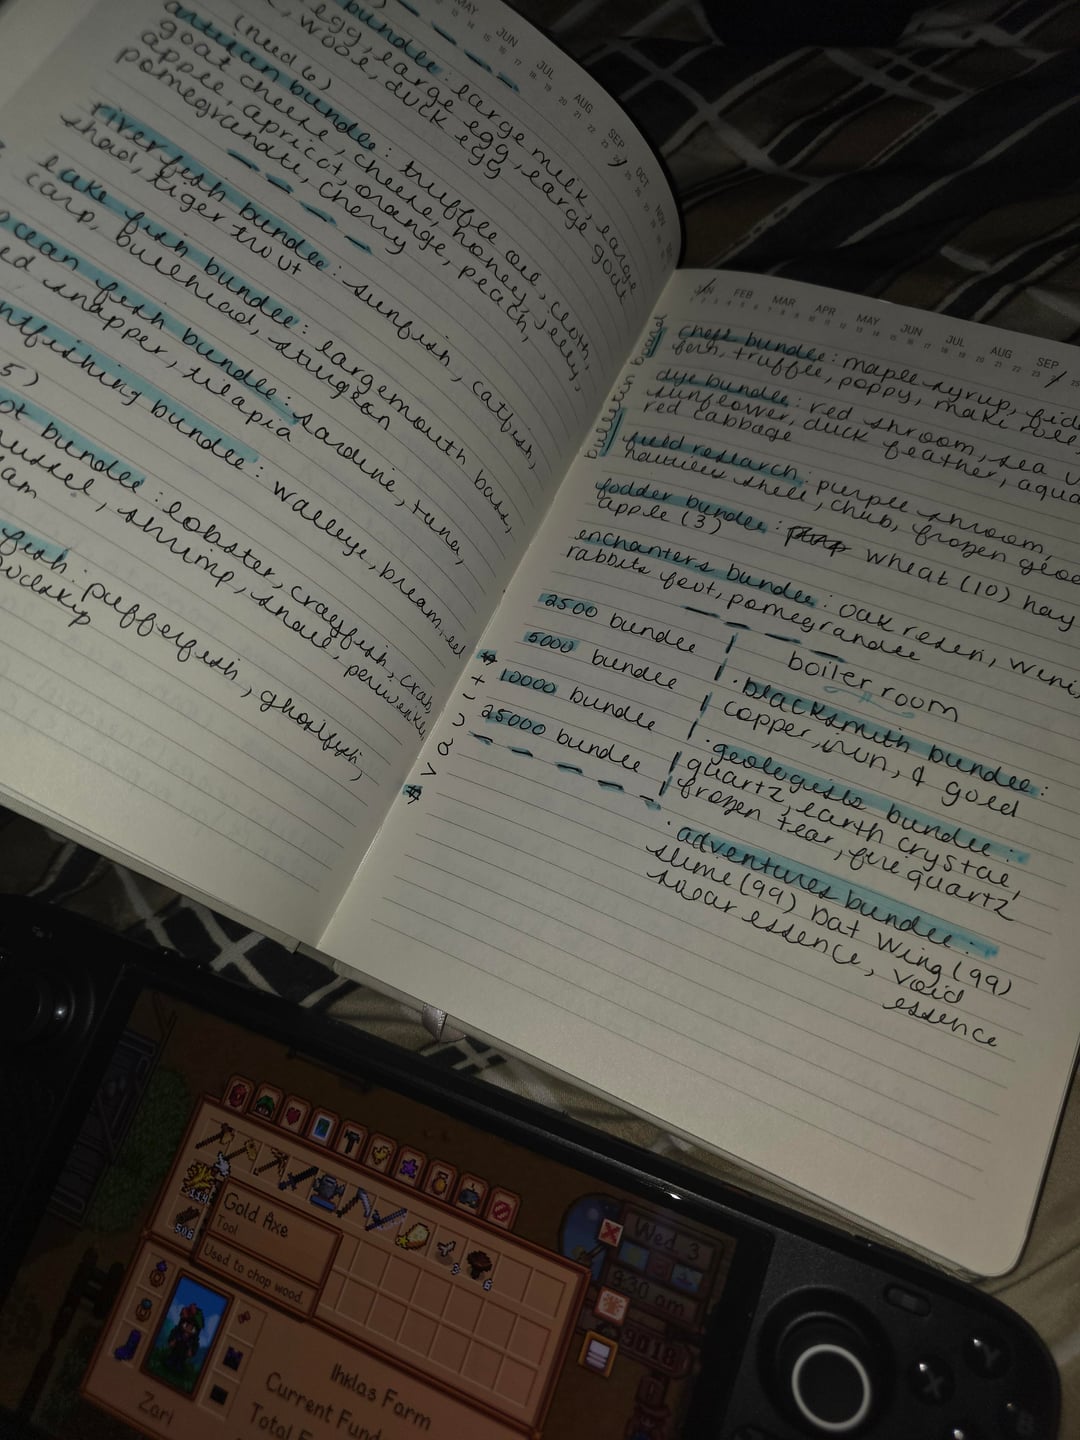 MAY
JUN
JUL
AUG
SEP
OCT
NOV
bundle: large milk, large
egg, large egg, large goat
, wool, duck egg
artisan bundle: truffle oil, cloth,
(need 6)
goat cheese, cheese, honey, jelly,
apple, apricot, orange, peach,
pomegranate, cherry
river fish bundle: sunfish, catfish,
shad, tiger trout
lake fish bundle: largemouth bass,
carp, bullhead, sturgeon
ocean fish bundle: sardine, tuna,
red snapper, tilapia
fishing bundle: walleye, bream, eel
5)
ot bundle: lobster, crayfish, crab,
mussel, shrimp, snail, periwinkle,
am
fish: pufferfish, ghostfish,
JAN FEB MAR APR MAY JUN JUL AUG SEP
bulletin board
chefs bundle: maple syrup, fidd
fern, truffle, poppy, maki roll,
dye bundle: red shroom, sea u
sunflower, duck feather, aqua
red cabbage
field research: purple shroom,
nautilus shell, chub, frozen geod
fodder bundle: wheat (10) hay
apple (3)
enchanters bundle: oak resin, wine,
rabbits foot, pomegrandee
2500 bundle
5000 bundle
10000 bundle
25000 bundle
boiler room
· blacksmith bundle:
copper, iron, & gold
· geologists bundle:
quartz, earth crystal,
frozen tear, fire quartz
· adventures bundle:
slime (99) bat wing (99)
solar essence, void
essence
Gold Axe
Tool
Used to chop wood.
506
3
6
Wed. 3
9:30 am
9018
Zari
Ihklas Farm
Current Fund
Total E
Y
X